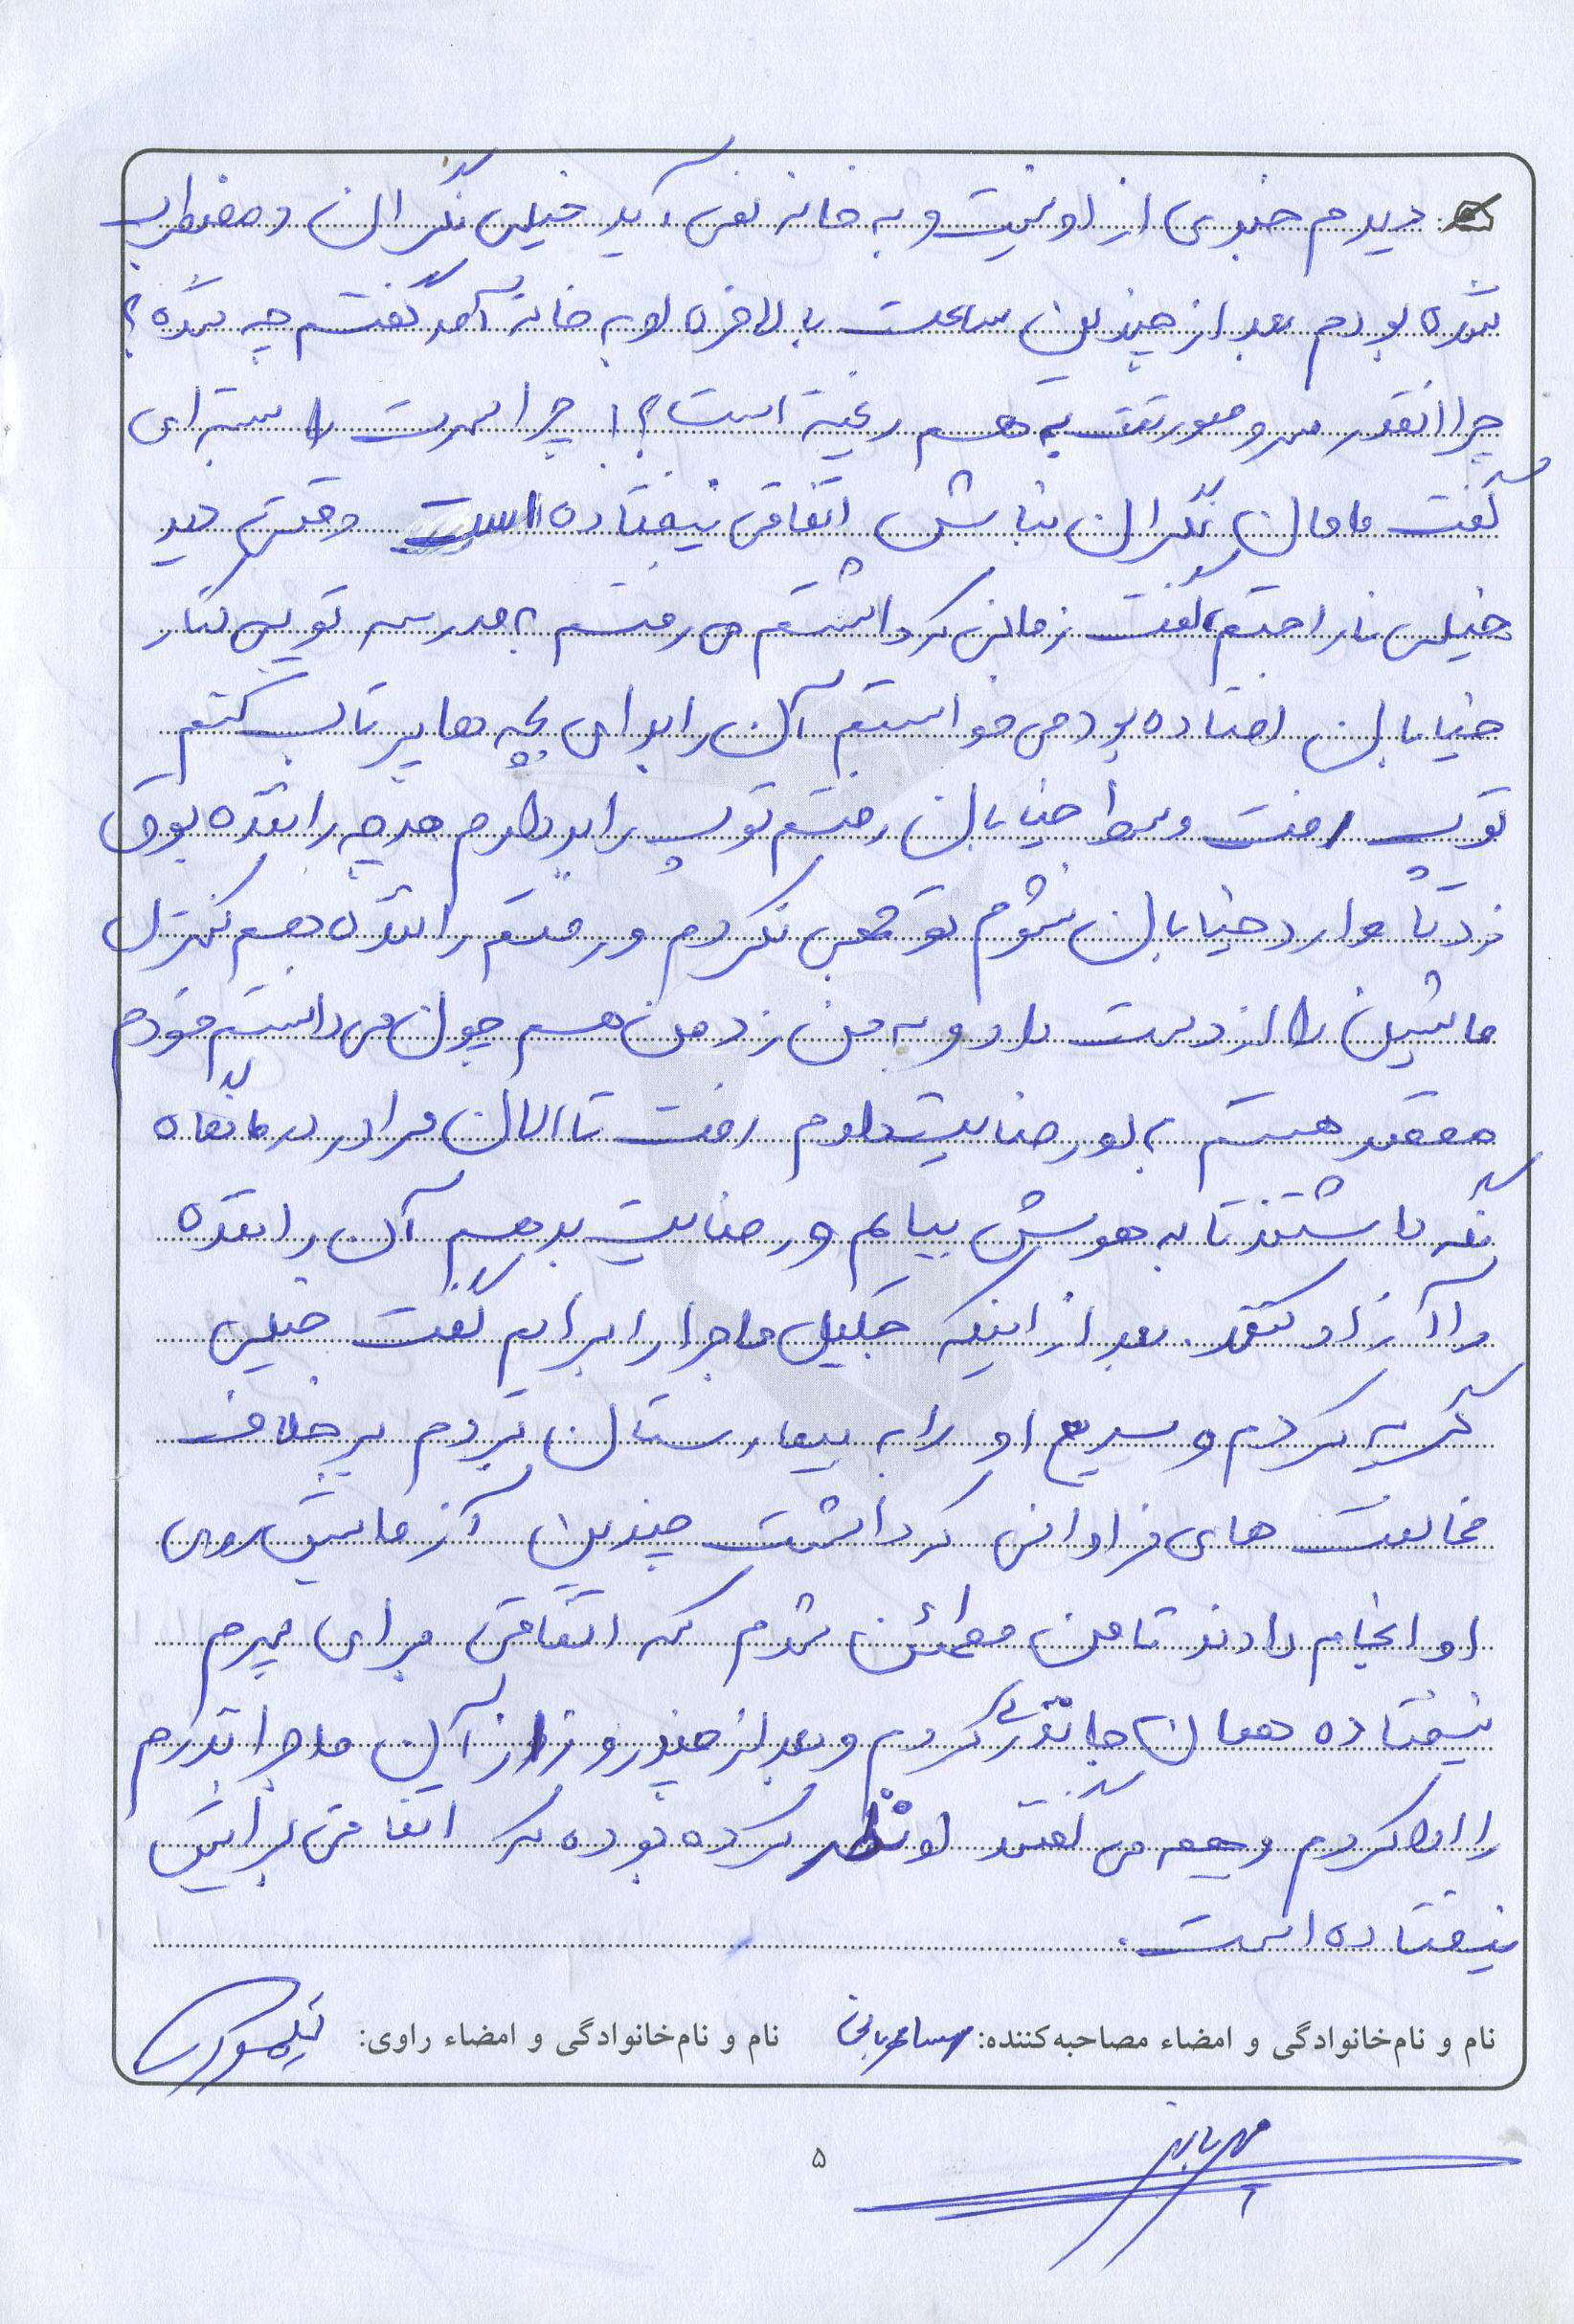 دیدم خبری از او نیست و به خانه نمی آید خیلی نگران و مضطرب
شده بودم بعد از چندین ساعت بالاخره او به خانه آمد گفتم چه شده؟
چرا انقدر سر و صورتت به هم ریخته است؟! چرا سرت را بسته ای
گفت مامان نگران نباش اتفاقی نیفتاده است وقتی دید
خیلی ناراحتم گفت زمانی که داشتم می رفتم به مدرسه توپی کنار
خیابان افتاده بود می خواستم آن را برای بچه ها پرتاب کنم
توپ رفت وسط خیابان رفتم توپ را بردارم هرچه راننده بوق
زد تا وارد خیابان نشوم توجهی نکردم و رفتم راننده هم کنترل
ماشین را از دست داد و به من زد من هم چون می دانستم خودم
مقصر هستم به او رضایت دادم رفت تا الان مرا در درمانگاه
نگه داشتند تا به هوش بیایم و رضایت بدهم آن راننده
را آزاد کنند. بعد از اینکه جلیل ماجرا را برایم گفت خیلی
گریه کردم و سریع او را به بیمارستان بردم برخلاف
مخالفت های فراوانی که داشت چندین آزمایش روی
او انجام دادند تا من مطمئن شدم که اتفاقی برای پسرم
نیفتاده همان جا نذری کردم و بعد از چند روز از آن ماجرا نذرم
را ادا کردم و همه می گفتند او نظر کرده بوده که اتفاقی برایش
نیفتاده است.
نام و نام‌خانوادگی و امضاء مصاحبه‌کننده: نام و نام‌خانوادگی و امضاء راوی:
۵